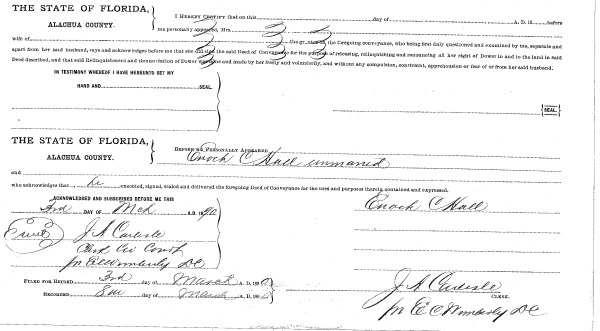 THE STATE OF FLORIDA,
ALACHUA COUNTY.
I HEREBY CERTIFY that on this day of A. D. 18 before
me personally appeared, Mrs.
wife of the grantor in the foregoing conveyance, who being first duly questioned and examined by me, separate and
apart from her said husband, says and acknowledges before me that she did sign the said Deed of Conveyance for the purpose of releasing, relinquishing and renouncing all her right of Dower in and to the land in said
Deed described, and that said Relinquishment and Renunciation of Dower was and made by her freely and voluntarily, and without any compulsion, constraint, apprehension or fear of or from her said husband.
IN TESTIMONY WHEREOF I HAVE HEREUNTO SET MY
HAND AND SEAL.
SEAL.
THE STATE OF FLORIDA,
ALACHUA COUNTY.
BEFORE me PERSONALLY APPEARED
Enoch C Hall unmarried
and
who acknowledges that he executed, signed, sealed and delivered the foregoing Deed of Conveyance for the uses and purposes therein contained and expressed.
ACKNOWLEDGED AND SUBSCRIBED BEFORE ME THIS
3rd DAY OF Mch A.D. 1890
Enoch C Hall
J A Carlisle
Clerk Cir Court
pr E C Wimberly DC
FILED FOR RECORD 3rd day of March A. D. 189
RECORDED day of March A. D. 189
J A Carlisle
CLERK.
pr E C Wimberly DC